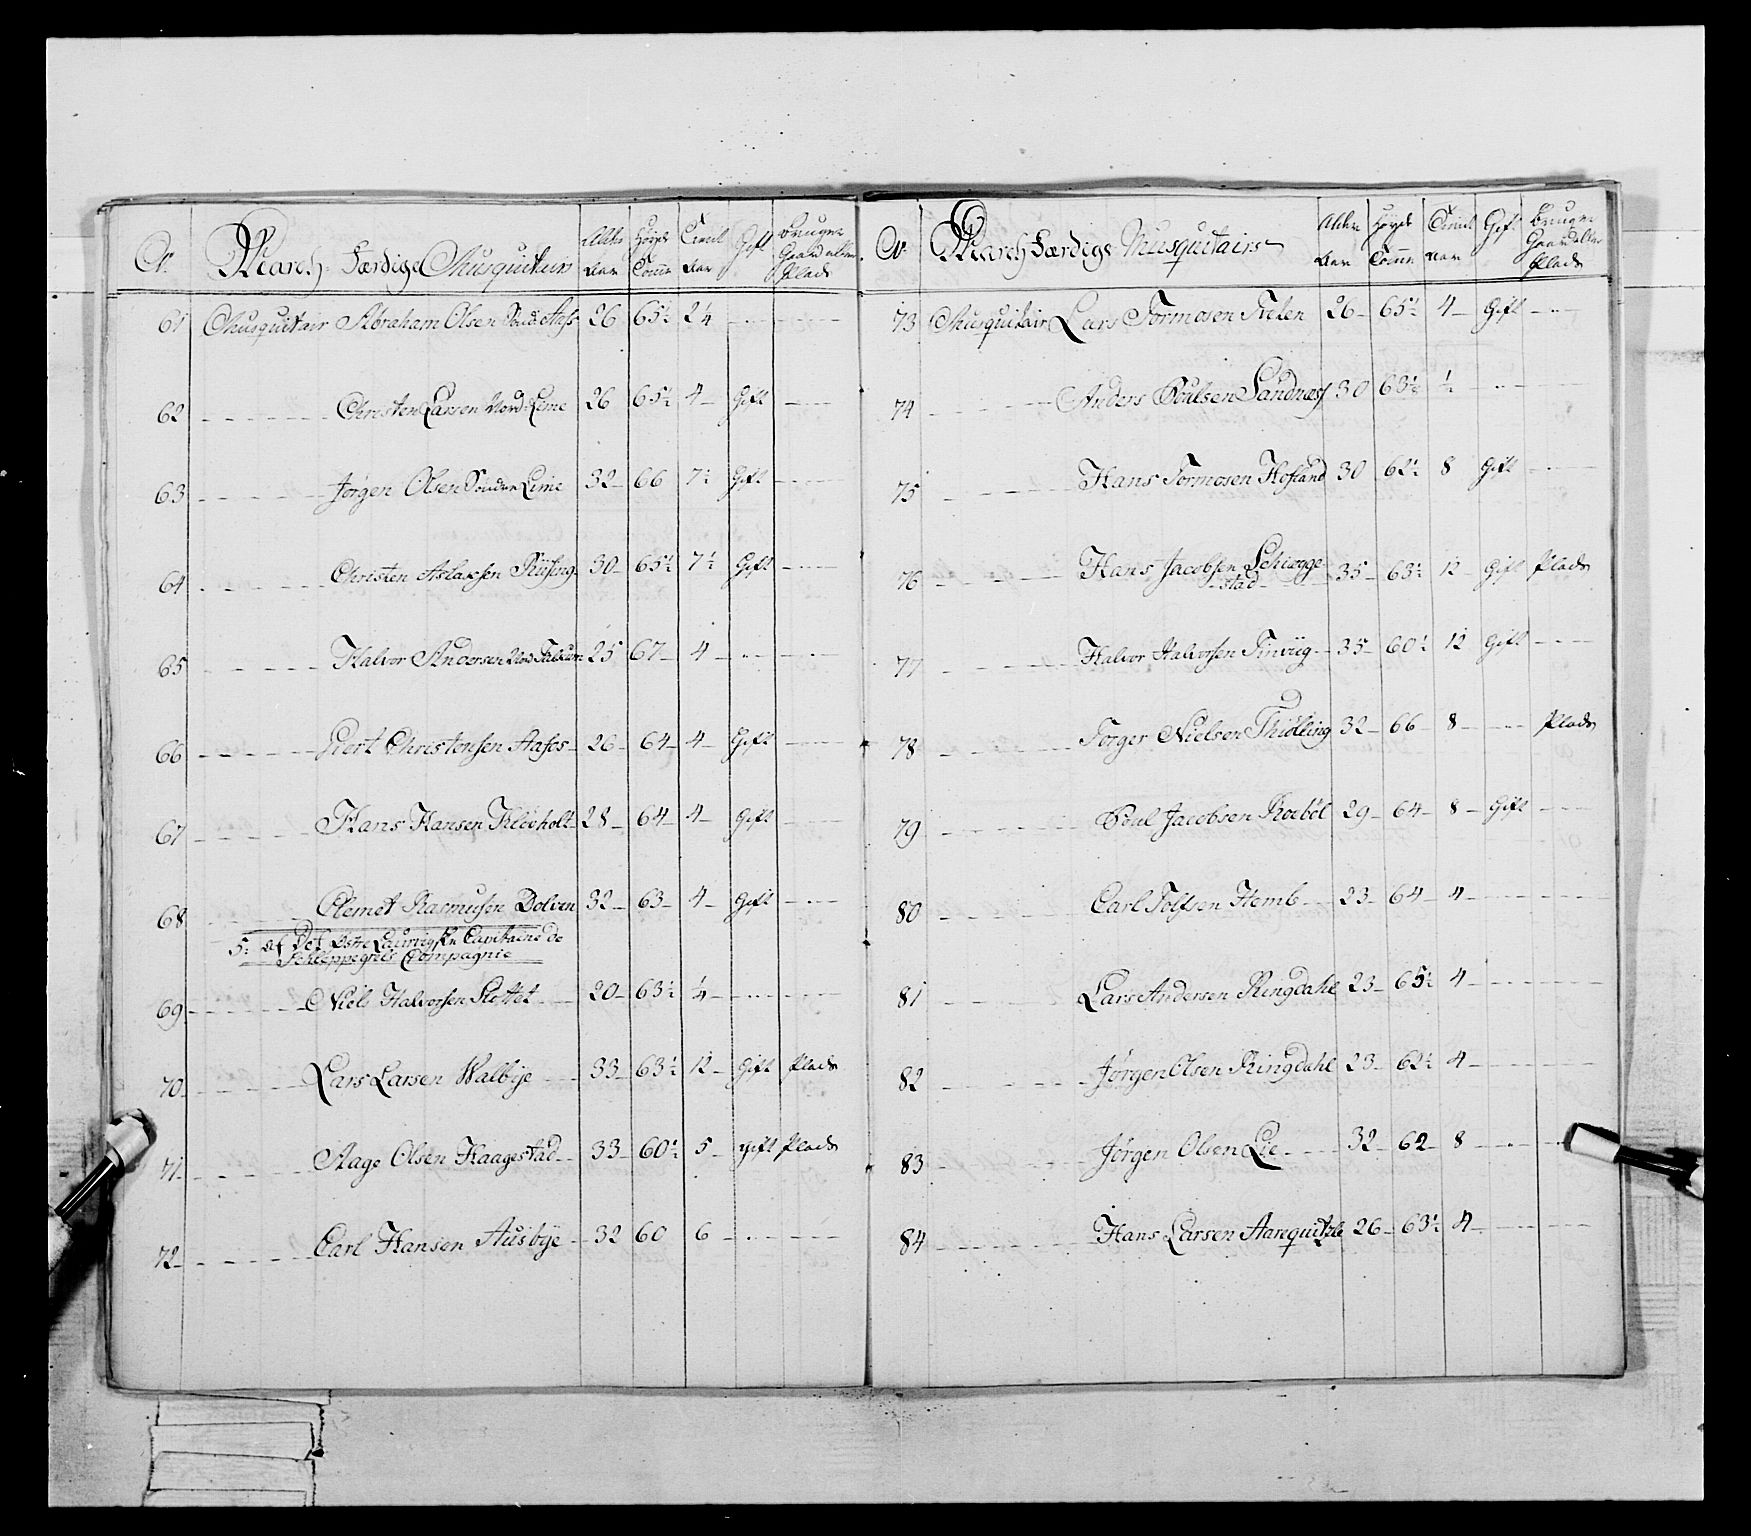 No. March-Færdige Musquetairs Alder Aar Høyde Tomme Tient Aar Gift Bruger Gaard eller Plads
61 Musquitair Abraham Olsen 26 65½ 2¼
62 Christen Larsen Nord-Lime 26 65½ 4 Gift
63 Jørgen Olsen Sønder Lime 32 66 7½ Gift
64 Christen Aslaxsen Riising 30 65½ 7½ Gift
65 Halvor Andersen Nord 25 67 4
66 Giert Christensen Aasos 26 64 4 Gift
67 Hans Hansen Kløvholt 28 64 4 Gift
68 Clemet Rasmusen Dolven 32 63 4 Gift
5: Af Det Laurvigske Capitaine de
Schleppegrels Compagnie
69 Niels Halvorsen Slottet 20 63½ ¼
70 Lars Larsen Walbye 33 63½ 12 Gift Plads
71 Aage Olsen Haagestad 33 60½ 5 gift Plads
72 Carl Hansen Ausbye 32 60 6
No. March Færdige Musquitairs Alder Aar Høyde Tomme Tient Aar Gift Bruger Gaard eller Plads
73 Musquitair Lars Tormosen Freten 26 65½ 4 Gift
74 Anders Poulsen Sandnæss 30 63½ ½
75 Hans Tormosen Hofland 30 62½ 8 Gift
76 Hans Jacobsen Schiegge-
stad 35 63½ 12 Gift Plads
77 Halvor Halvorsen Tinvиg 35 60½ 12 Gift
78 Torger Nielsen Thiølling 32 66 8 Plads
79 Poul Jacobsen Roebøl 29 64 8 Gift
80 Carl Tolfsen Hemb 23 64 4
81 Lars Andersen Ringdahl 23 65½ 4
82 Jørgen Olsen Ringdahl 23 62½ 4
83 Jørgen Olsen Lie 32 62 8
84 Hans Larsen 26 63½ 4